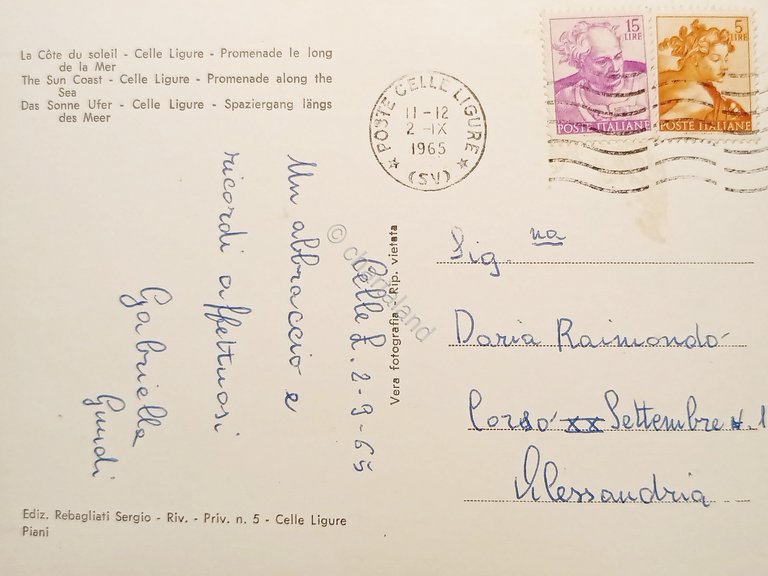 La Côte du soleil - Celle Ligure - Promenade le long
de la Mer
The Sun Coast - Celle Ligure - Promenade along the
Sea
Das Sonne Ufer - Celle Ligure - Spaziergang längs
des Meer
POSTE CELLE LIGURE
11-12
2-IX
1965
(SV)
15
LIRE
POSTE ITALIANE
5
LIRE
POSTE ITALIANE
Celle L. 2-9-65
Un abbraccio e
ricordi affettuosi
Gabriella
Guidi
© chartaland
Vera fotografia - Rip. vietata
Sig.na
Daria Raimondo
Corso XX Settembre N. 1
Alessandria
Ediz. Rebagliati Sergio - Riv. - Priv. n. 5 - Celle Ligure
Piani